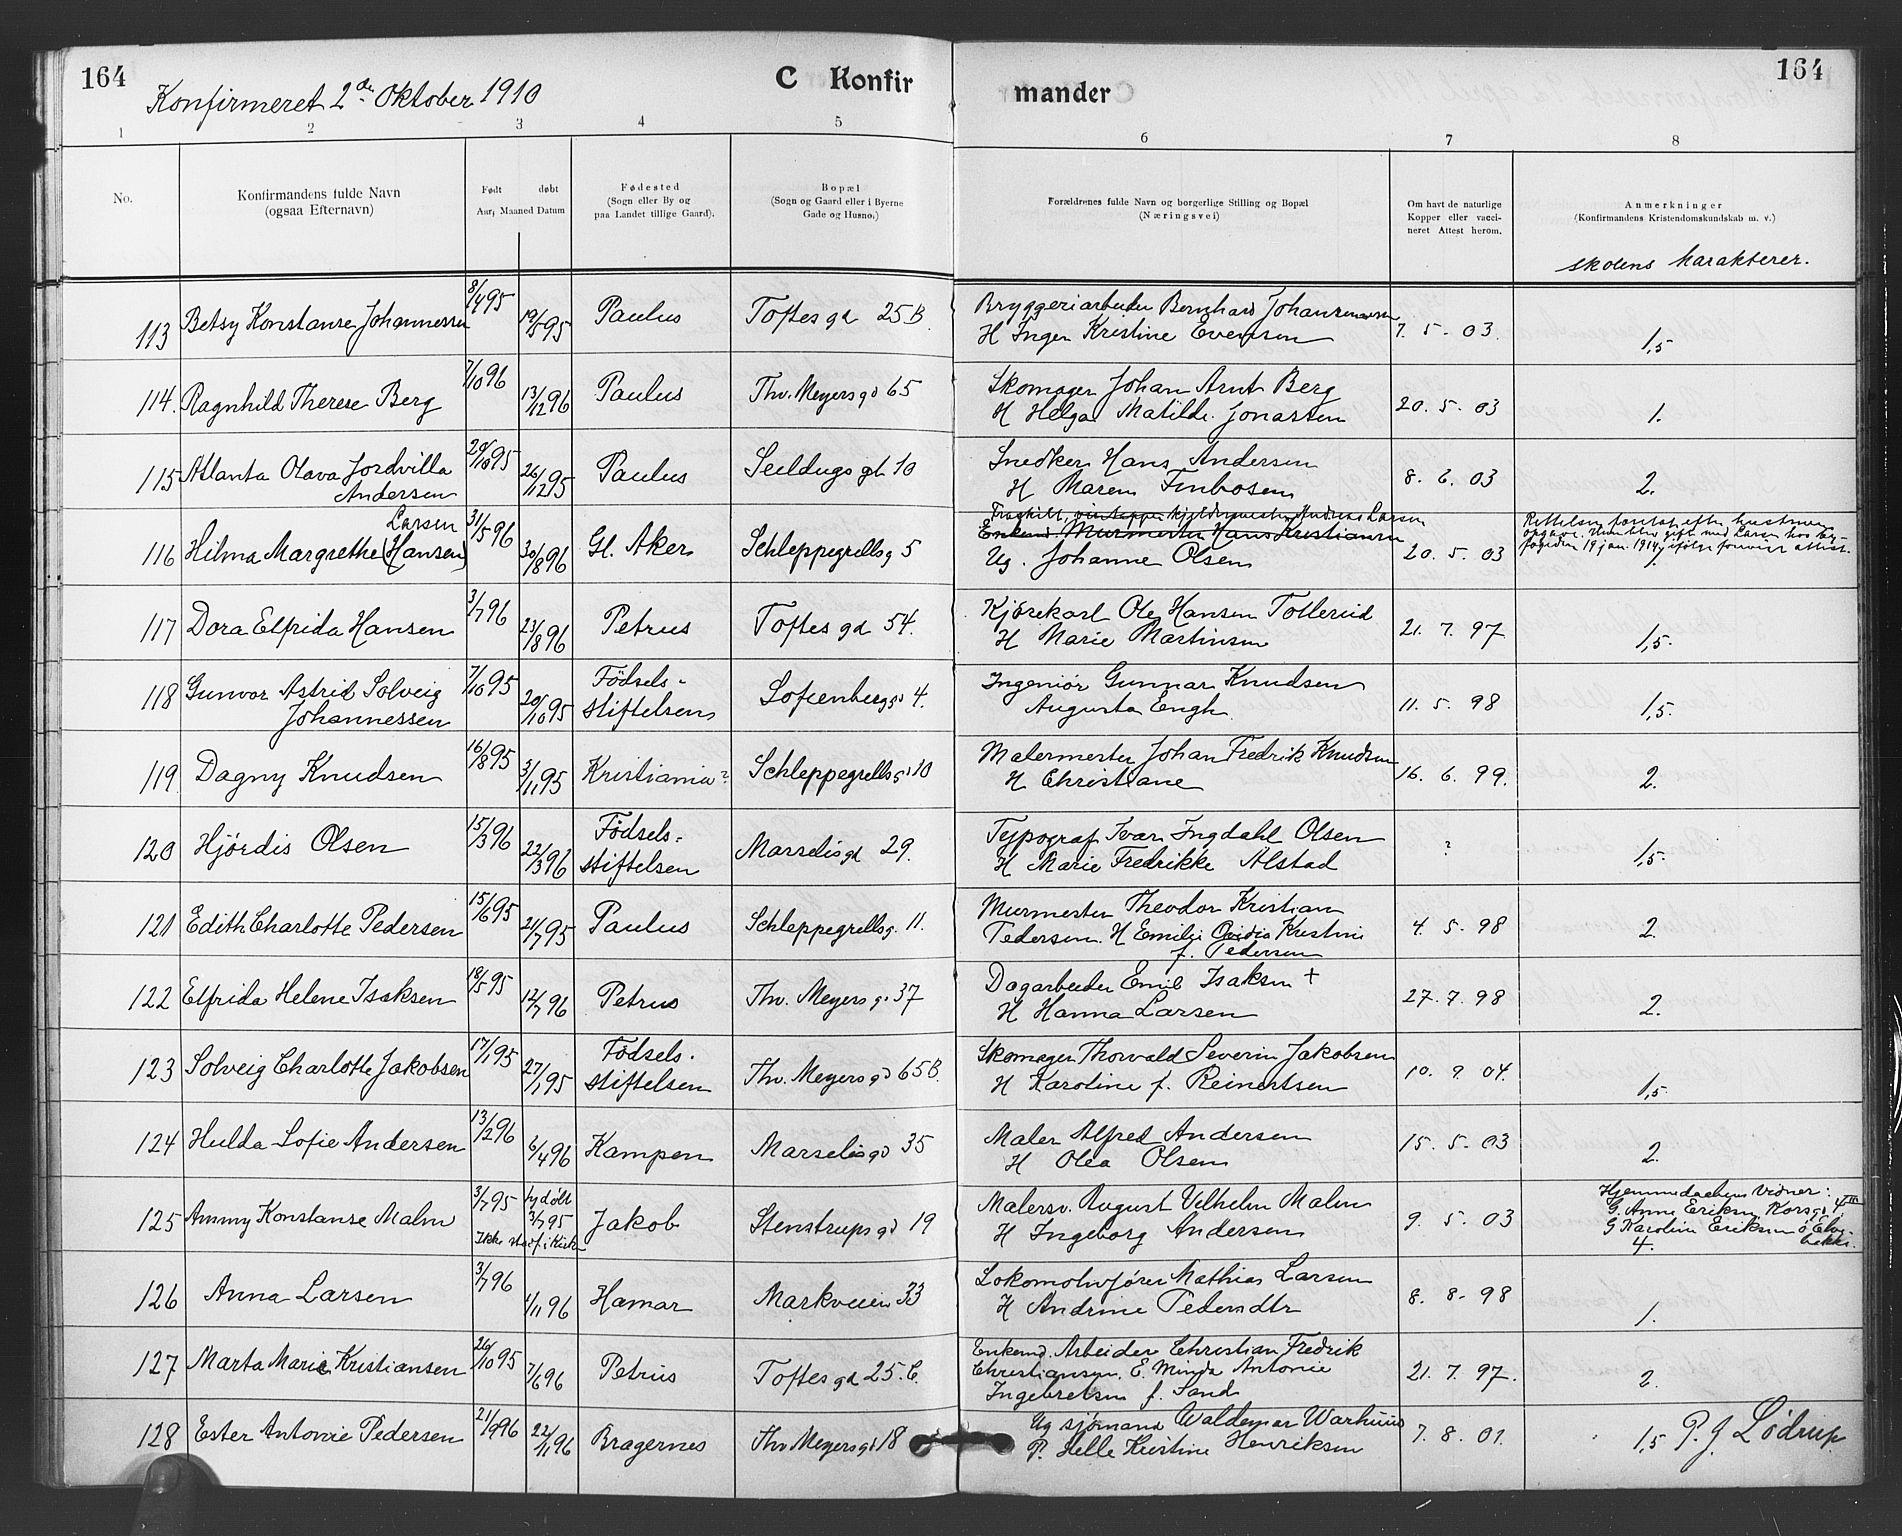 164
C Konfir
mander
164
Konfirmeret 2den Oktober 1910
1 2 3 4 5 6 7 8
No.
Konfirmandens fulde Navn
(ogsaa Efternavn)
Født døbt
Aar, Maaned Datum
Fødested
(Sogn eller By og
paa Landet tillige Gaard).
Bopæl
(Sogn og Gaard eller i Byerne
Gade og Husno.)
Forældrenes fulde Navn og borgerlige Stilling og Bopæl
(Næringsvei)
Om havt de naturlige
Kopper eller vacci-
neret Attest herom.
Anmerkninger
(Konfirmandens Kristendomskundskab m. v.)
skolens karakterer.
113 Betsy Konstanse Johannessen 8/4 95 19/5 95 Paulus Toftes gd 25B.
Bryggeriarbeider Bernhard Johannessen
H Inger Kristine Evensen 7. 5 - 03. 1,5
114. Ragnhild Therese Berg 7/10 96 13/12 96 Paulus Thv. Meyers gd 65
Skomager Johan Arnt Berg
H Helga Matilde Jonassen 20. 5. 03 1.
115 Atlanta Olava Jordvilla
Andersen 29/10 95 26/12 95 Paulus Seildugs gt 10
Snedker Hans Andersen
H Maren Finbosen 8. 6. 03 2.
116 Hilma Margrethe (Hansen)
Larsen 31/5 96 30/8 96 Gl. Aker Schleppegrells g 5
Andreas Larsen
Enkemd Murmester Hans Kristiansen
Ug. Johanne Olsen 20. 5. 03
Rettelsen foretat efter
opgave. gift med Larsen hos by-
fogden 19 jan. 1914, ifølge forevist attest.
117 Dora Elfrida Hansen 3/7 96 23/8 96 Petrus Toftes gd 54.
Kjørekarl Ole Hansen Tollerud
H Marie Martinsen 21. 7. 97 1,5.
118 Gunvor Astrid Solveig
Johannessen 7/10 95 20/10 95 Fødsels-
stiftelsen Sofienberg gd 4.
Ingeniør Gunnar Knudsen
Augusta Engh. 11. 5. 98 1,5.
119. Dagny Knudsen 16/8 95 3/11 95 Kristiania? Schleppegrells gd 10
Malermester Johan Fredrik Knudsen
H Christiane 16. 6. 99. 2.
120 Hjördis Olsen 15/3 96 22/3 96 Fødsels-
stiftelsen Marselis gd 29.
Typograf Ivar Ingdahl Olsen
H Marie Fredrikke Alstad ? 1,5.
121 Edith Charlotte Pedersen 15/6 95 21/7 95 Paulus Schleppegrells g. 11.
Murmester Theodor Kristian
Pedersen. H Emilie Ovidia Kristine
f. Pedersen 4. 5. 98 2.
122 Elfrida Helene Isaksen 18/5 95 12/7 96 Petrus Thv. Meyers g. 37
Dagarbeider Emil Isaksen +
H Hanna Larsen 27. 7. 98 2.
123 Solveig Charlotte Jakobsen 17/1 95 27/1 95 Fødsels.
stiftelsen Thv. Meyers gd 65B.
Skomager Thorvald Severin Jakobsen
H Karoline f. Reinertsen 10. 9. 04. 1,5.
124 Hulda Sofie Andersen 13/2 96 6/4 96 Kampen Marselis gd 35
Maler Alfred Andersen
H Olea Olsen 15. 5. 03 2.
125 Ammy Konstanse Malm 3/7 95 hjdøbt
3/7 95
Ikke stadf. i Kirken Jakob Stenstrups gd 19
Malersv. August Vilhelm Malm
H Ingeborg Andersen 9. 5. 03
Hjemmedaabens Vidner:
G. Anne Eriksen Korsgd.
G Karoline Eriksen ø Elve-
bakke.
4.
126 Anna Larsen 3/7 96 1/11 96 Hamar Markveien 33
Lokomotivfører Mathias Larsen
H Andrine Pedersdtr 8. 8. 98 1.
127 Marta Marie Kristiansen 26/10 95 7/6 96 Petrus Toftes gd 25. C.
Enkemd. Arbeider Christian Fredrik
Christiansen. E. Minda Antonie
Ingebretsen f. Sand 21. 7. 97. 2.
128 Ester Antonie Pedersen 21/9 96 22/11 96 Bragernes Thv Meyers gd 18
Ug sjømand Waldemar Warhuus
P. Helle Kristine Henriksen 7. 8. 01. 1,5
P. J. Lødrup